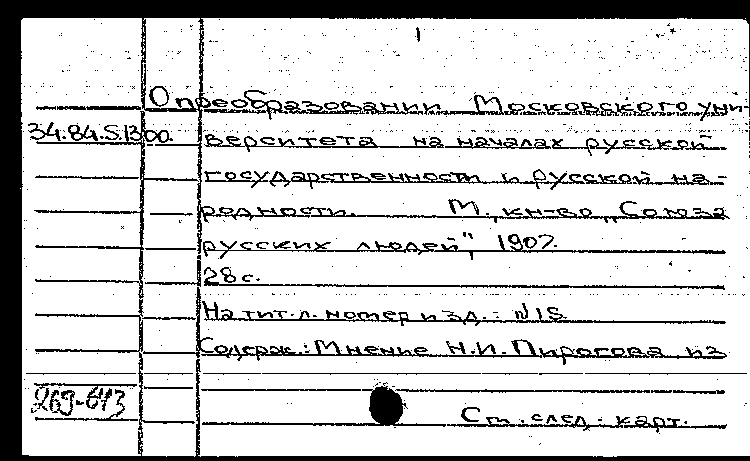 1
О преобразовании Московского уни-
34.84.5.1300. верситета на началах русской
государственности и русской на-
родности. М., кн-во „Союза
русских людей", 1907.
28 с.
На тит. л. номер изд.: №15
Содерж.: Мнение Н.И. Пирогова из
269-613
См. след. карт.